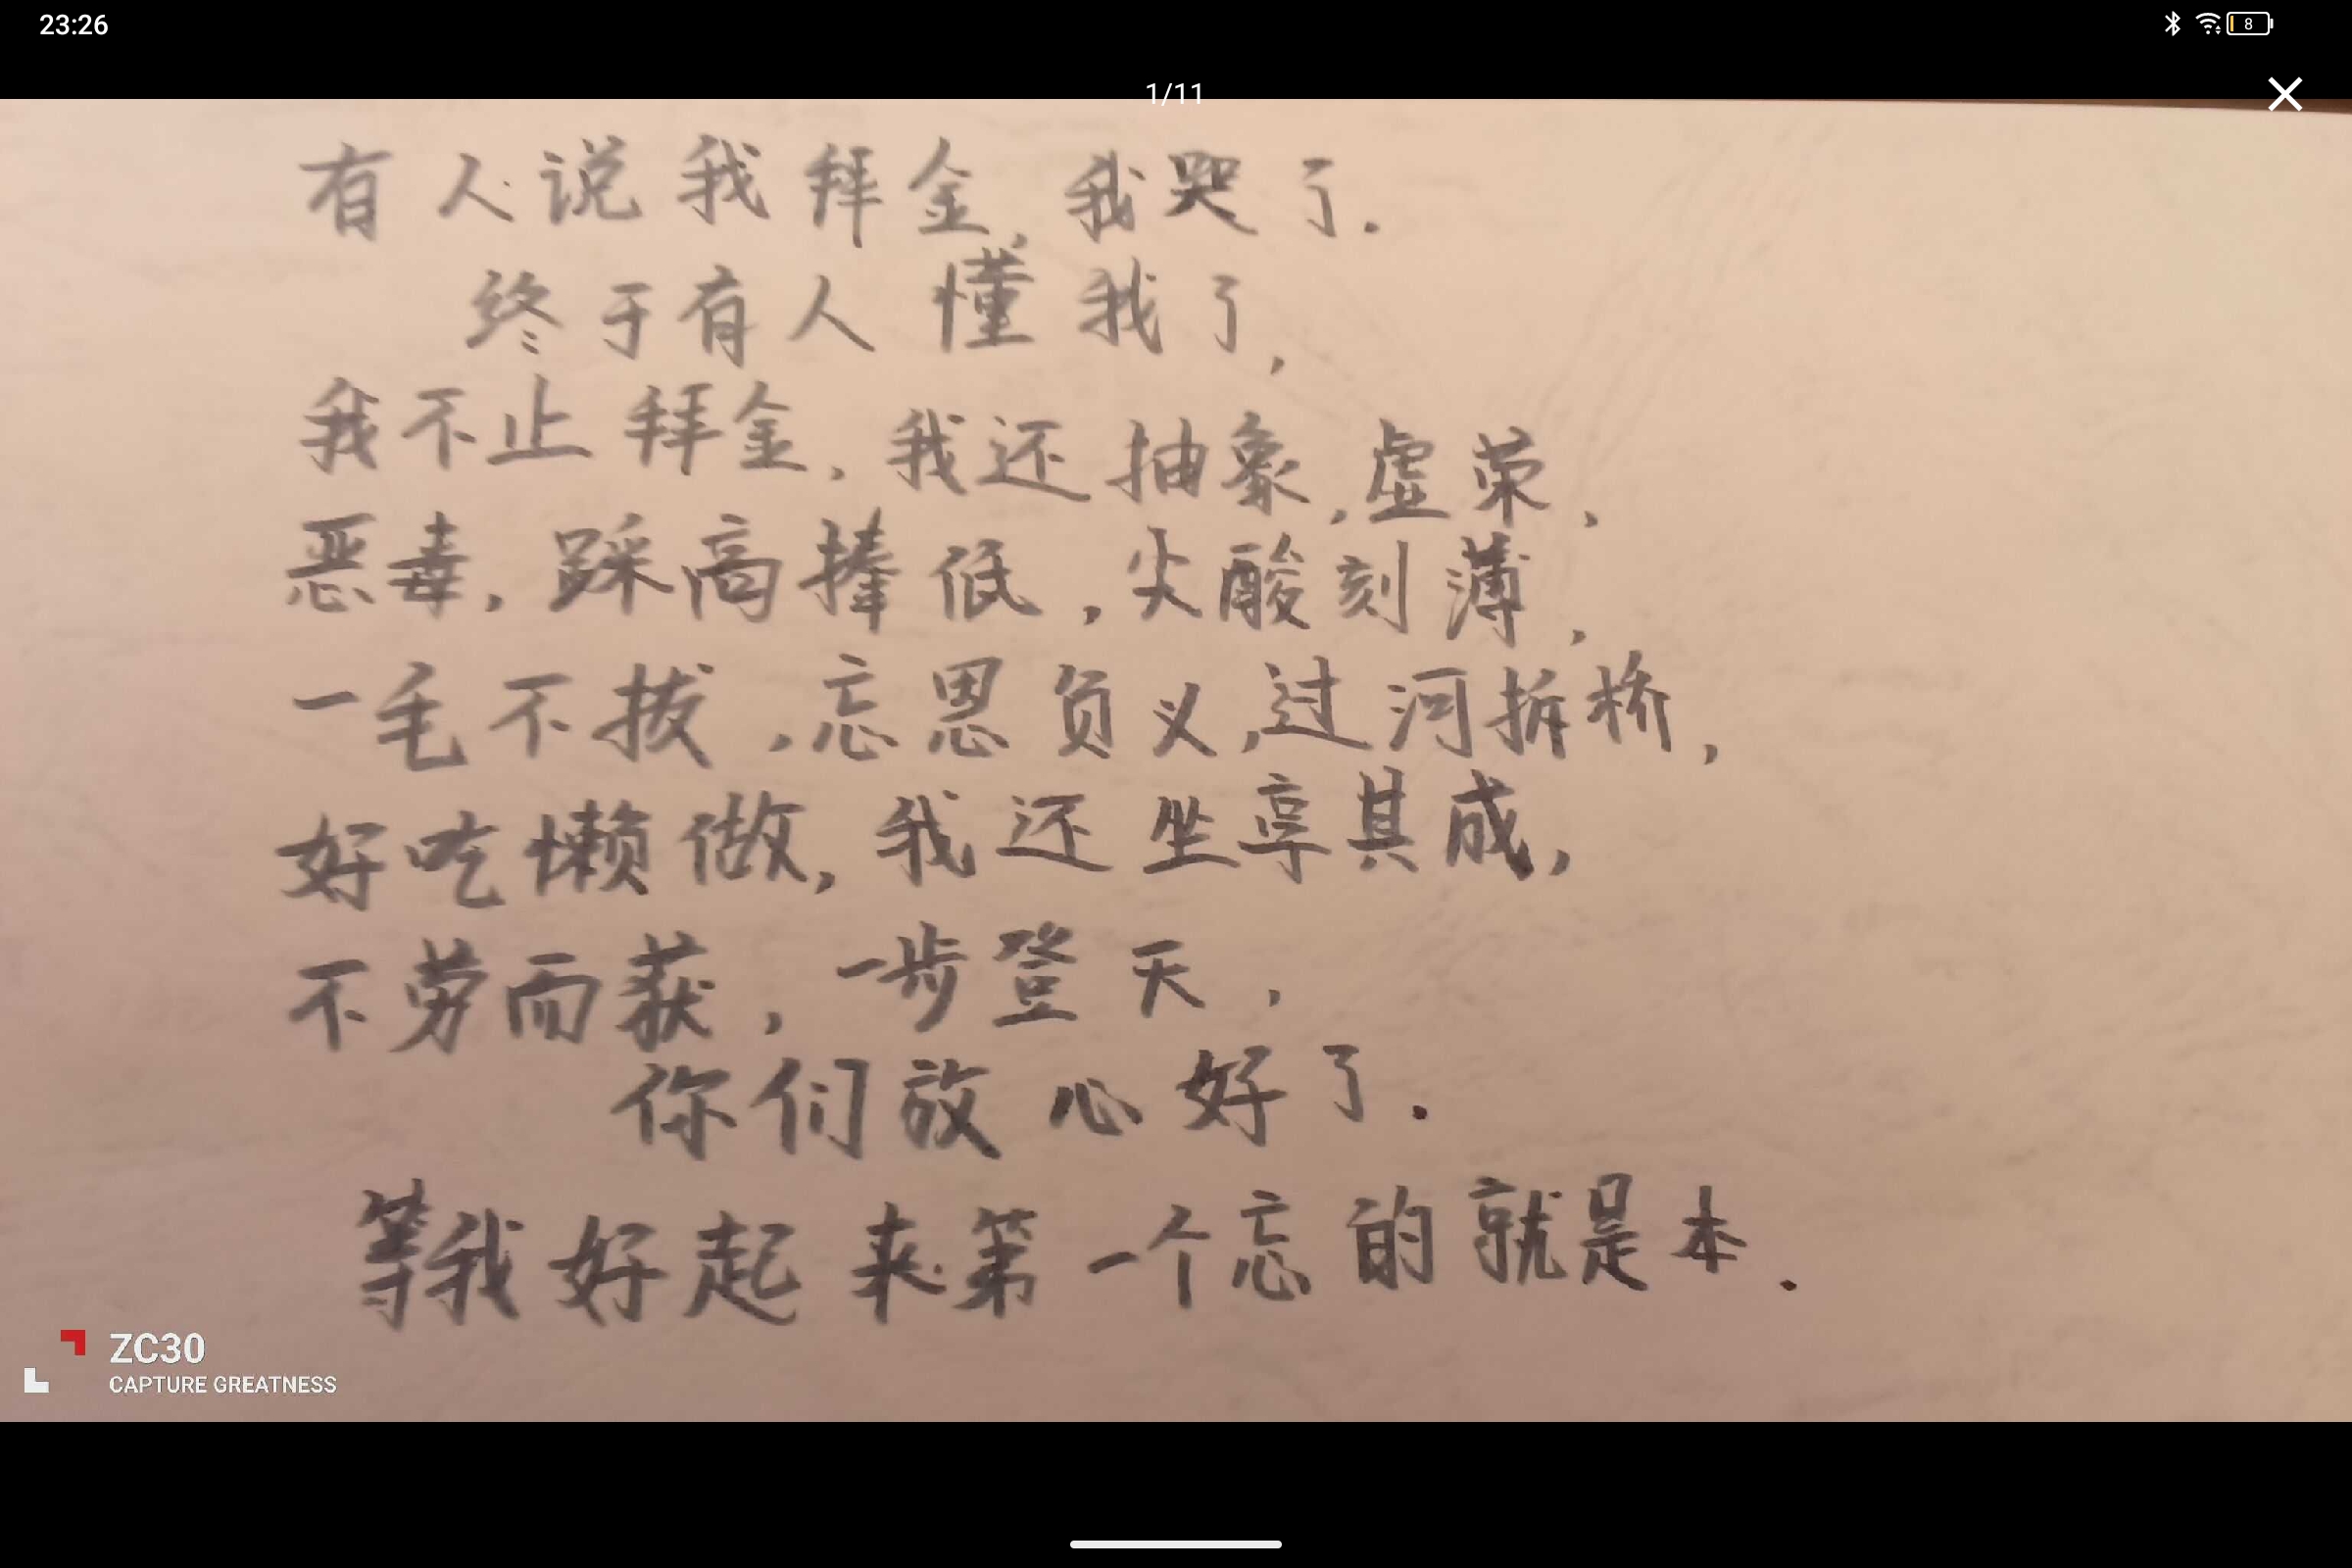 23:26
8
1/11
有人说我拜金,我哭了.
终于有人懂我了,
我不止拜金,我还抽象,虚荣,
恶毒,踩高捧低,尖酸刻薄,
一毛不拔,忘恩负义,过河拆桥,
好吃懒做,我还坐享其成,
不劳而获,一步登天,
你们放心好了.
等我好起来第一个忘的就是本.
ZC30
CAPTURE GREATNESS